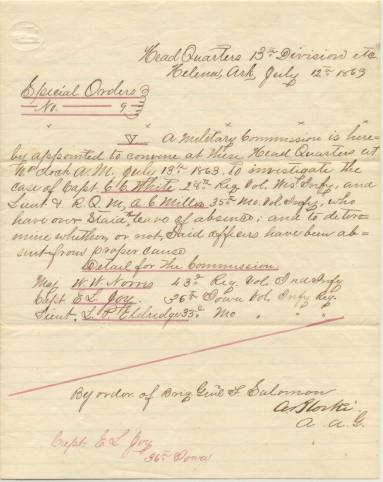 Head Quarters 13th Division etc
Helena, Ark July 12th 1863
Special Orders
No. 9
V A Military Commission is here-
by appointed to convene at these Head Quarters at
o'clock A.M. July 13th 1863, to investigate the
case of Capt C. C. White 28th Reg Vol. Wis. Infy, and
Lieut & R. Q. M, A. C. Miller 35th Mo. Vol. Infy, who
have over staid leave of absence; and to deter-
mine whether or not, said officers have been ab-
sent from proper cause
Detail for the Commission.
Maj W. W. Norris 43d Reg Vol Ind Infy
Capt E L Joy. 36th Iowa Vol Infy Reg.
Lieut. L. P. Eldridge 33d Mo " " "
By order of Brig Genl F. Salomon
A. A. G.
Capt. E L Joy
36th Iowa